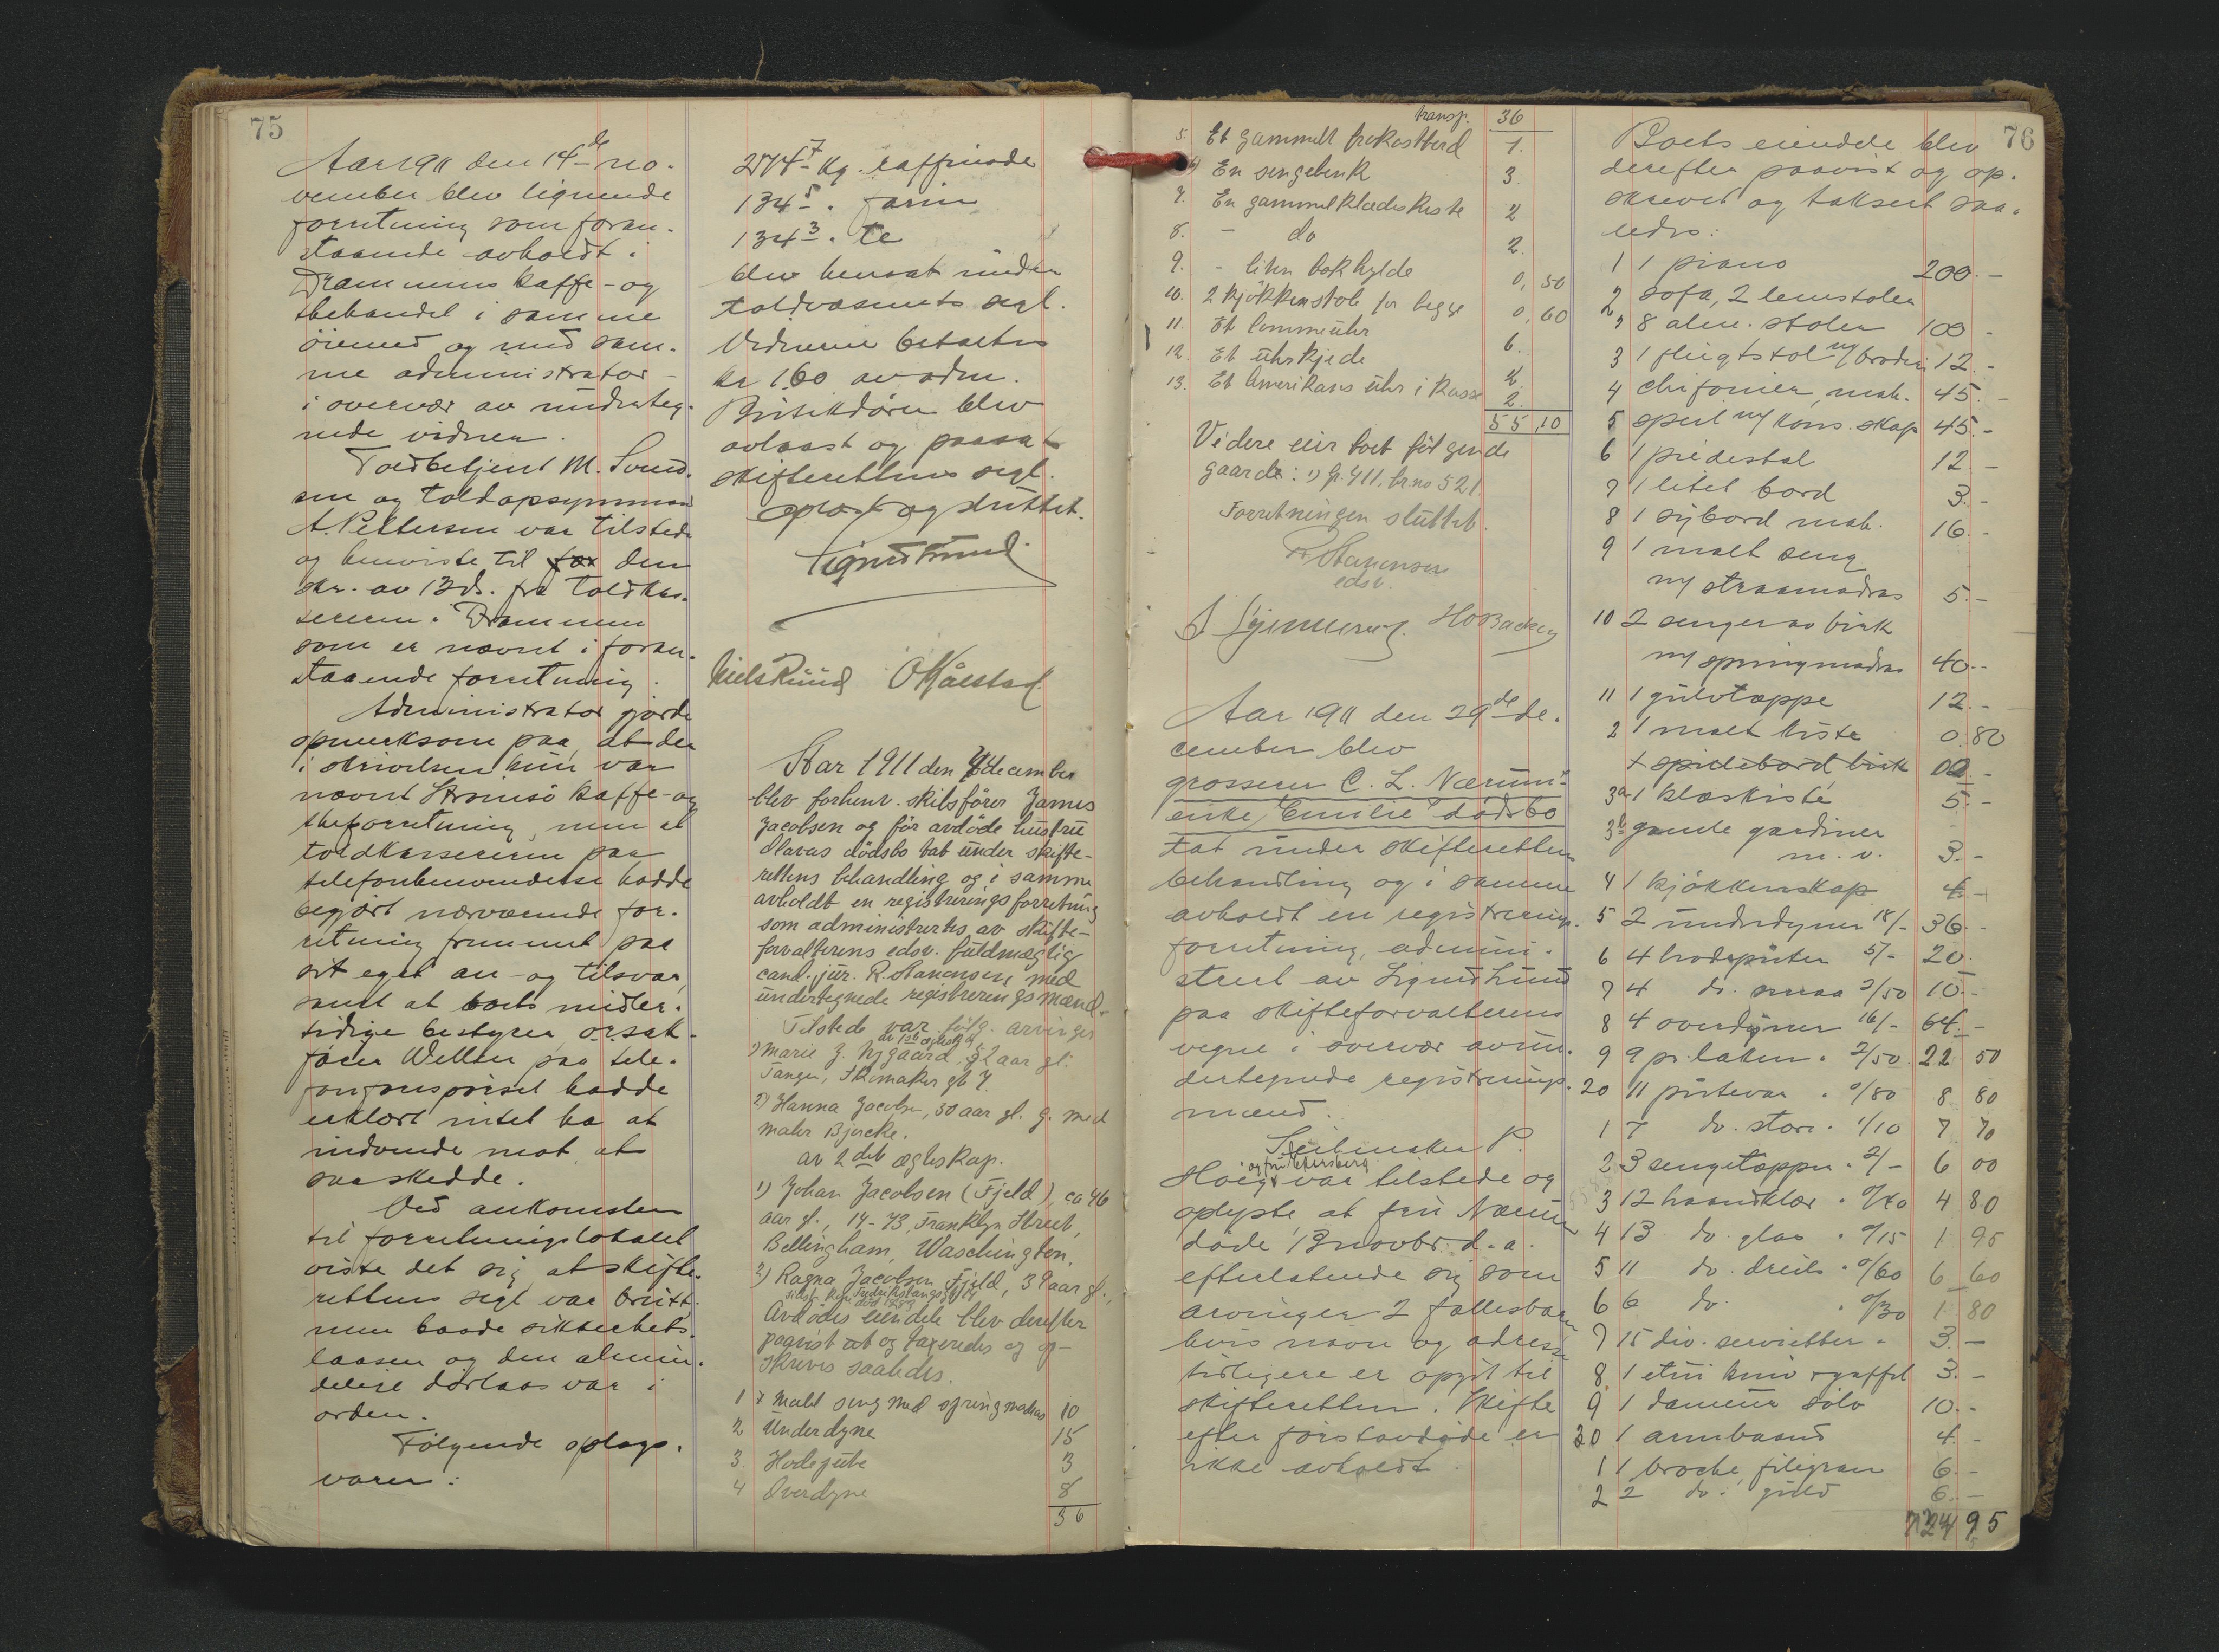 75
Aar 1911 den 14de no-
vember blev lignende
forretning som foran-
staaende avholdt i
Drammens kaffe- og
thehandel i samme
öiemed og med sam-
me administrator -
i overvær av underteg-
nede vidner.
Toldbetjent M. Svend-
sen og toldopsynsmand
A. Pettersen var tilstede
og henviste til den
skr. av 13 ds. fra toldkas-
sereren i Drammen
som er nævnt i foran-
staaende forretning.
Administrator gjorde
opmerksom paa, at der
i skrivelsen kun var
nævnt Strömsö kaffe- og
theforretning, men at
toldkassereren paa
telefonhenvendelse hadde
begjært nærværende for-
retning fremmet paa
sit eget an- og tilsvar,
samt at boets midler-
tidige bestyrer, o.r.sak-
förer Wellen paa tele-
fonforespörsel hadde
erklært intet ha at
indvende mot, at
saa skedde.
Ved ankomsten
til forretningslokalet
viste det sig at skifte-
rettens segl var brutt;
men baade sikkerhets-
laasen og den almin-
delige dörlaas var i
orden.
Følgende oplags-
varer:
2714 7 kg. raffinade
134 5 " farin
134 3 " te
blev hensat under
toldvæsenets segl.
Vidnerne betaltes
kr 1.60 av adm.
Butikdören blev
avlaast og paasat
skifterettens segl.
Oplæst og sluttet.
Sigurd Lund
Niels Ruud O Kåestad
Aar 1911 den december
blev forhenv. skibsfører James
Jacobsen og før avdöde hustru
Olavas dödsbo tat under skifte-
rettens behandling og i samme
avholdt en registreringsforretning
som administrertes av skifte-
forvalterens edsv. fuldmægtig
cand. jur. R. Hanonsen med
undertegnede registreringsmænd.
Tilstede var fölg. arvinger
av 1ste egteskab
1) Marie J. Nygaard, 52 aar gl.
Tangen, Skomaker gt 7.
2) Hanna Jacobsen, 50 aar gl. g. med
maler Bjercke.
av 2det egteskap.
1) Johan Jacobsen (Fjeld), ca 46
aar gl., 14-73, Franklyn Street,
Bellingham, Waschington.
2) Ragna Jacobsen Fjeld, 38 aar gl.,
Avdödes eiendele blev derefter
paavist at og taxeredes og op-
skrevs saaledes.
1 1 Malt seng med springmadras 10
2 Underdyne 15
3. Hodepute 3
4 Overdyne 8
36
transp. 36
5. Et gammelt frokostbord 1.
6) En sengebenk 3.
7. En gammel klædeskiste 2
8. - do 2.
9. - liten bokhylde 0,50
10. 2 kjökkenstole for begge 0,60
11. Et lommeuhr 6.
12. Et uhrkjede
13. Et Amerikans uhr i kasse 2.
55,10
Videre eier boet fölgende
gaarde: 1) Gr. 411, br.no 521.
Forretningen sluttet.
R Hanonsen
edsv.
HO Backen
Aar 1911 den 29de de-
cember blev
grosserer C. L. Nærum's
enke "Emilie" dödsbo
tat under skifterettens
behandling og i samme
avholdt en registrerings-
forretning, admini-
strert av Sigurd Lund
paa skifteforvalterens
vegne i overvær av un-
dertegnede registrerings-
mænd.
Seilmaker P.
Höeg var tilstede og
oplyste, at fru Nærum
döde 13 novbr. d.a.
efterlatende sig som
arvinger 2 fællesbarn
hvis navn og adresse
tidligere er opgit til
skifteretten. Skifte
efter förstavdöde er
ikke avholdt.
76
Boets eiendele blev
derefter paavist og op-
skrevet og taksert saa-
ledes:
1 1 piano 200.-
2 sofa, 2 lenestoler
" 8 alm. stoler 100 -
3 1 flugtstol m/ broderi 12.-
4 chifonier, mah. 45.-
5 speil m/ kons. skap 45.-
6 1 piedestal 12 -
7 1 litet bord 3.-
8 1 sybord mah. 16.-
9 1 malt seng
m/ straamadras 5.-
10 2 senger av birk
m/ springmadras 40.-
11 1 gulvtæppe 12.-
2 1 malt kiste 0.80
1 spillebord birk
3a 1 klæskiste 5.-
3b gamle gardiner
m. v. 3.-
4 1 kjökkenskap 4.-
5 2 underdyner 18/- 36.-
6 4 hodeputer 5/- 20.
7 4 do. smaa 2/50 10.-
8 4 overdyner 16/- 64.-
9 9 pr. laken " 2/50 22 50
20 11 putevar " 0/80 8 80
1 7 do. store " 1/10 7 70
2 3 sengetæpper " 2/- 6 00
3 12 haandklær " 0/40 4 80
4 13 do. glas " 0/15 1 95
5 11 do. dreils " 0/60 6 60
6 6 do. " 0/30 1 80
7 15 div. servietter " 3.-
8 1 etui kniv + gaffel 3.-
9 1 dameur sölv 10.-
30 1 armbaand 4.-
1 1 broche, filigran 6.-
2 2 do. guld 6.-
724 95